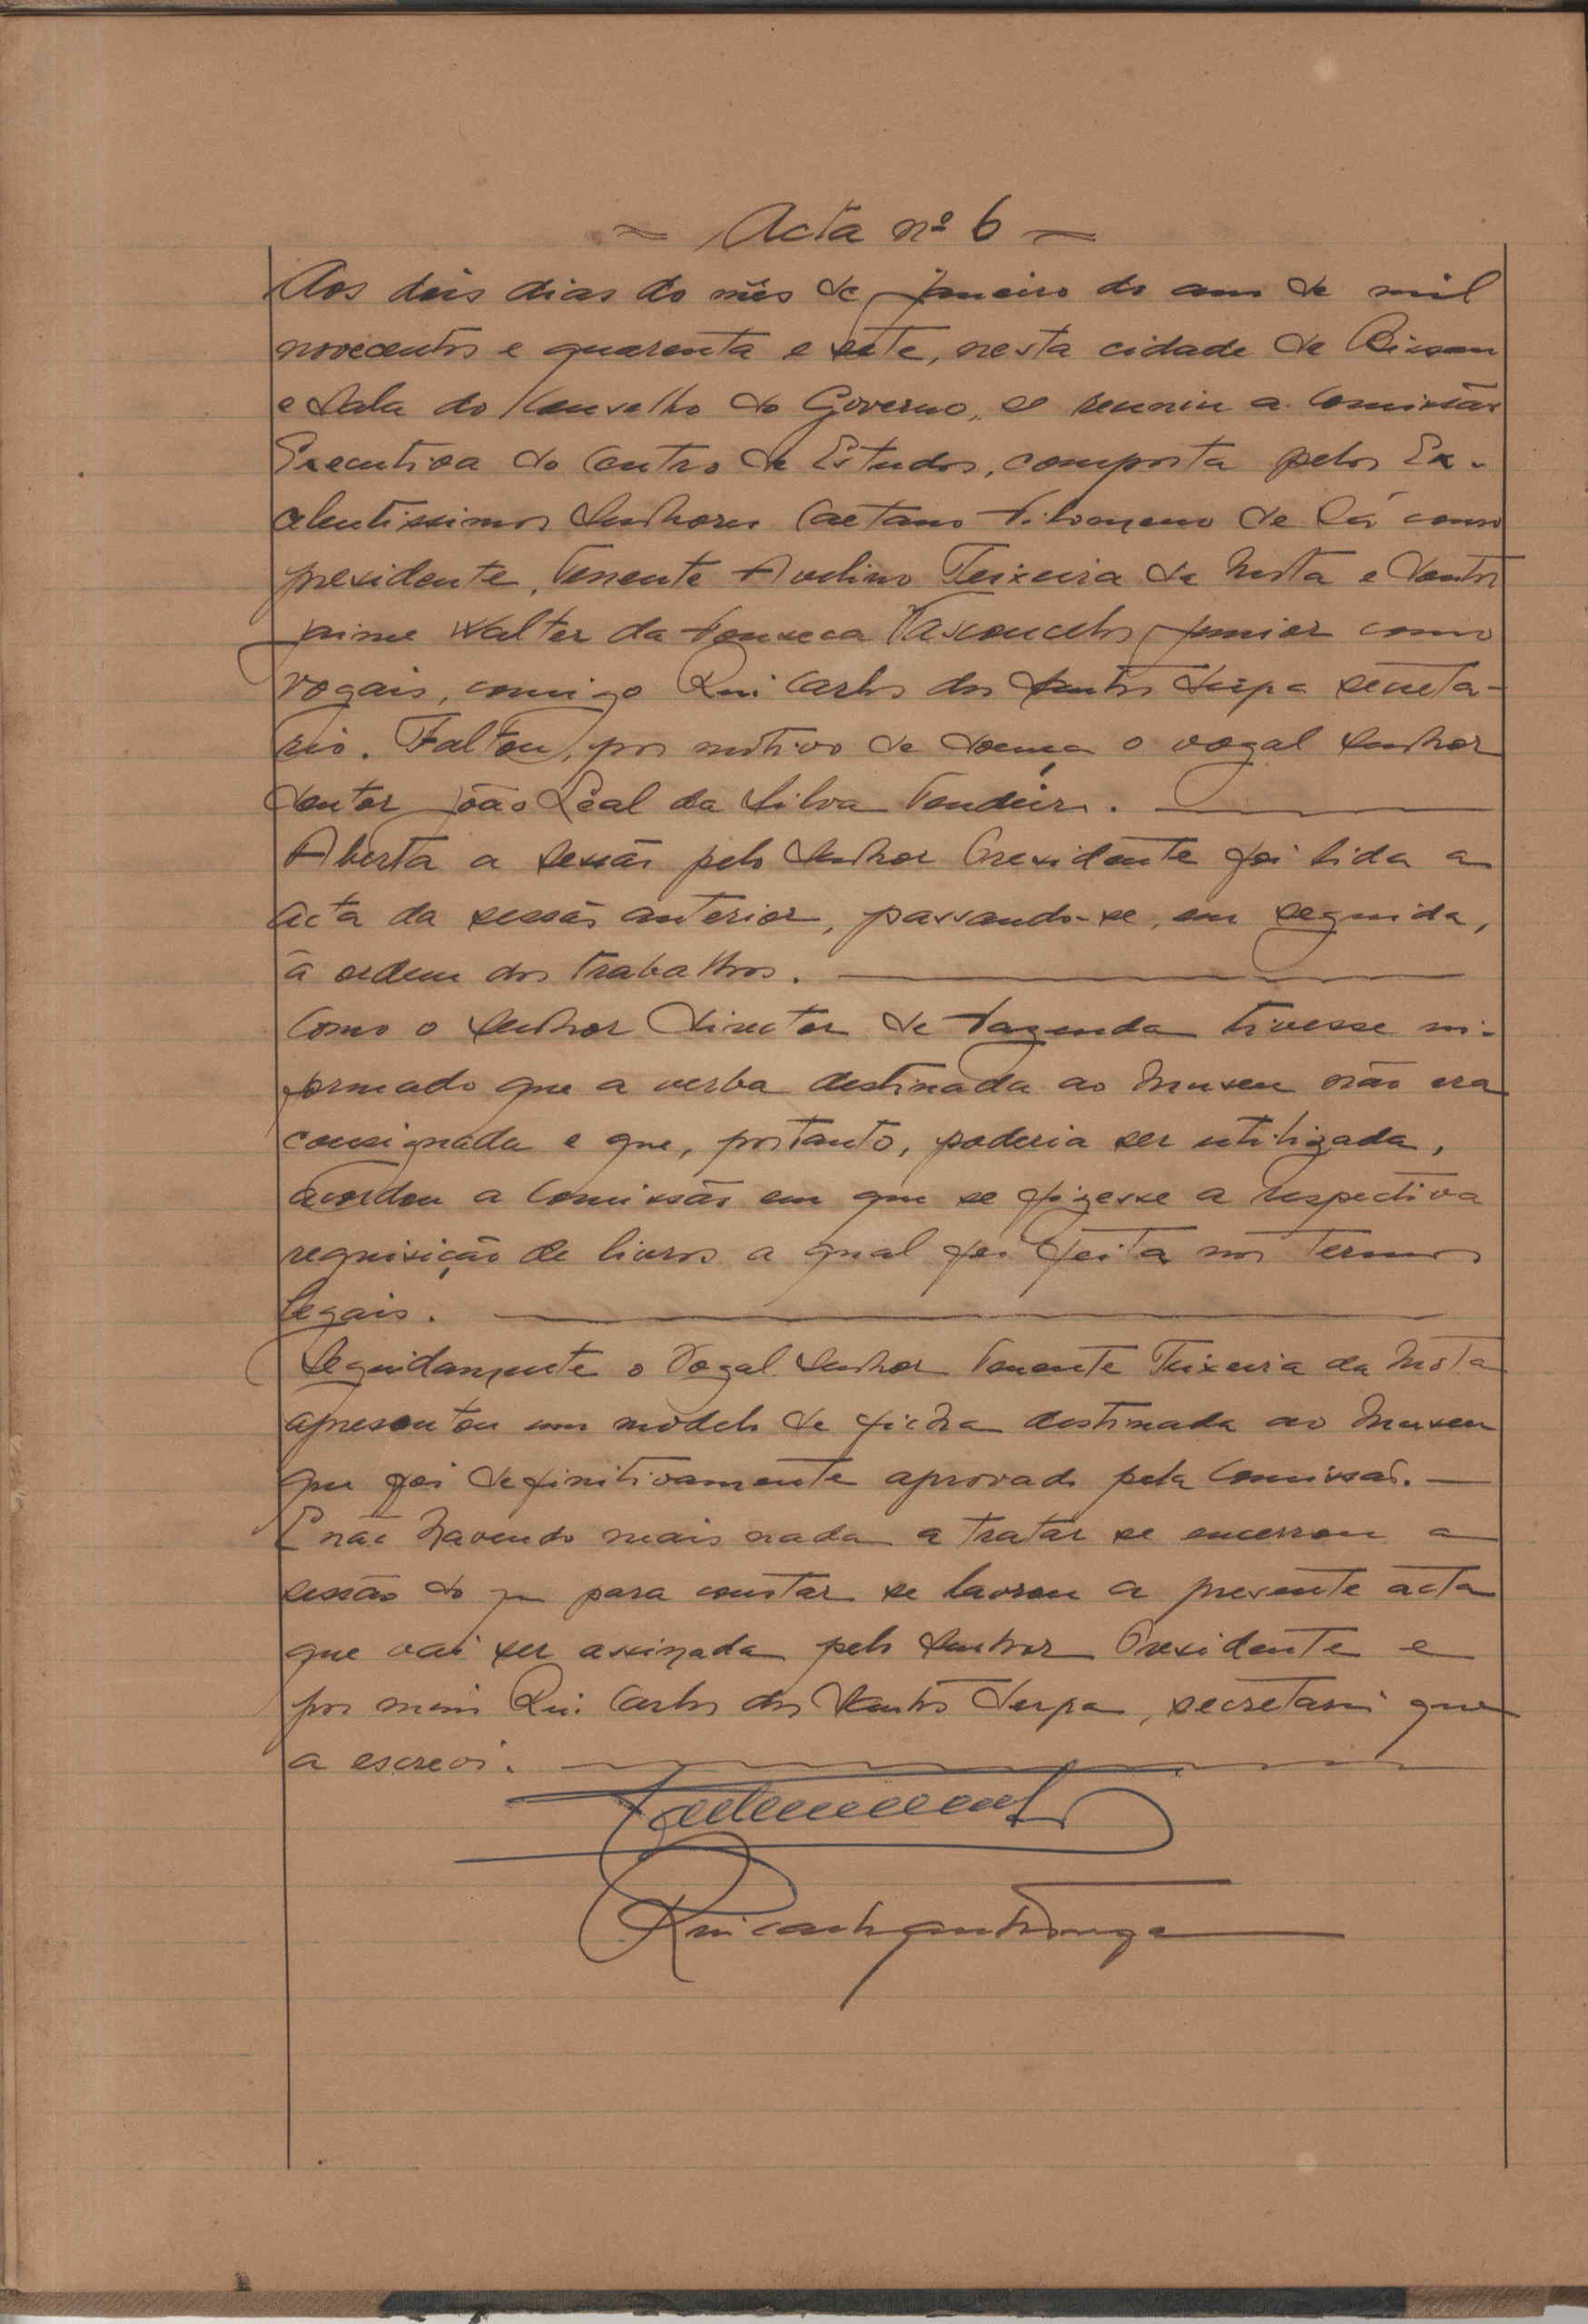 Acta nº 6
Aos dois dias do mês de Janeiro do ano de mil
novecentos e quarenta e sete, nesta cidade de Bissau
e Sala do Conselho do Governo, se reuniu a Comissão
Executiva do Centro de Estudos, composta pelos Ex-
celentissimos Senhores Caetano Filomeno de Sá como
presidente, Tenente Avelino Teixeira da Mota e Doutor
Jaime Walter da Fonseca Vasconcelos Junior como
vogais, comigo Rui Carlos dos Santos Serpa secretá-
rio. Faltou, por motivo de doença o vogal Senhor
Doutor João Leal da Silva Tendeiro.
Aberta a sessão pelo Senhor Presidente foi lida a
acta da sessão anterior, passando-se, em seguida,
à ordem dos trabalhos.
Como o Senhor Director de Fazenda tivesse in-
formado que a verba destinada ao Museu não era
consignada e que, portanto, poderia ser utilizada,
acordou a Comissão em que se fizesse a respectiva
requisição de livros a qual foi feita nos termos
legais.
Seguidamente o Vogal Senhor Tenente Teixeira da Mota
apresentou um modelo de ficha destinada ao Museu
que foi definitivamente aprovado pela Comissão.
E não havendo mais nada a tratar se encerrou a
sessão do que para constar se lavrou a presente acta
que vai ser assinada pelo Senhor Presidente e
por mim Rui Carlos dos Santos Serpa, secretario que
a escrevi.